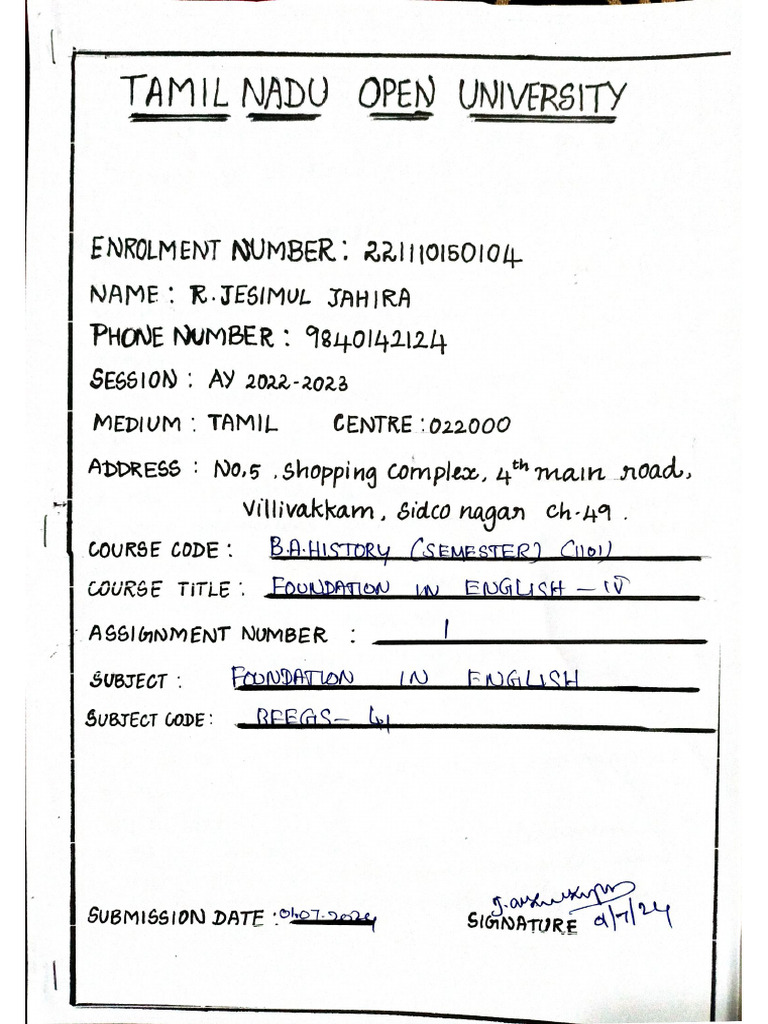 TAMIL NADU OPEN UNIVERSITY
ENROLMENT NUMBER : 221110150104
NAME : R. JESIMUL JAHIRA
PHONE NUMBER : 9840142124
SESSION : AY 2022-2023
MEDIUM : TAMIL CENTRE : 022000
ADDRESS : No.5 , Shopping Complex, 4th main road,
Villivakkam, Sidco nagar Ch-49 .
COURSE CODE : B.A.HISTORY (SEMESTER) (1101)
COURSE TITLE : FOUNDATION IN ENGLISH - IV
ASSIGNMENT NUMBER : 1
SUBJECT : FOUNDATION IN ENGLISH
SUBJECT CODE : BFEGS- 41
SUBMISSION DATE : 01.07.2024
SIGNATURE /7/24